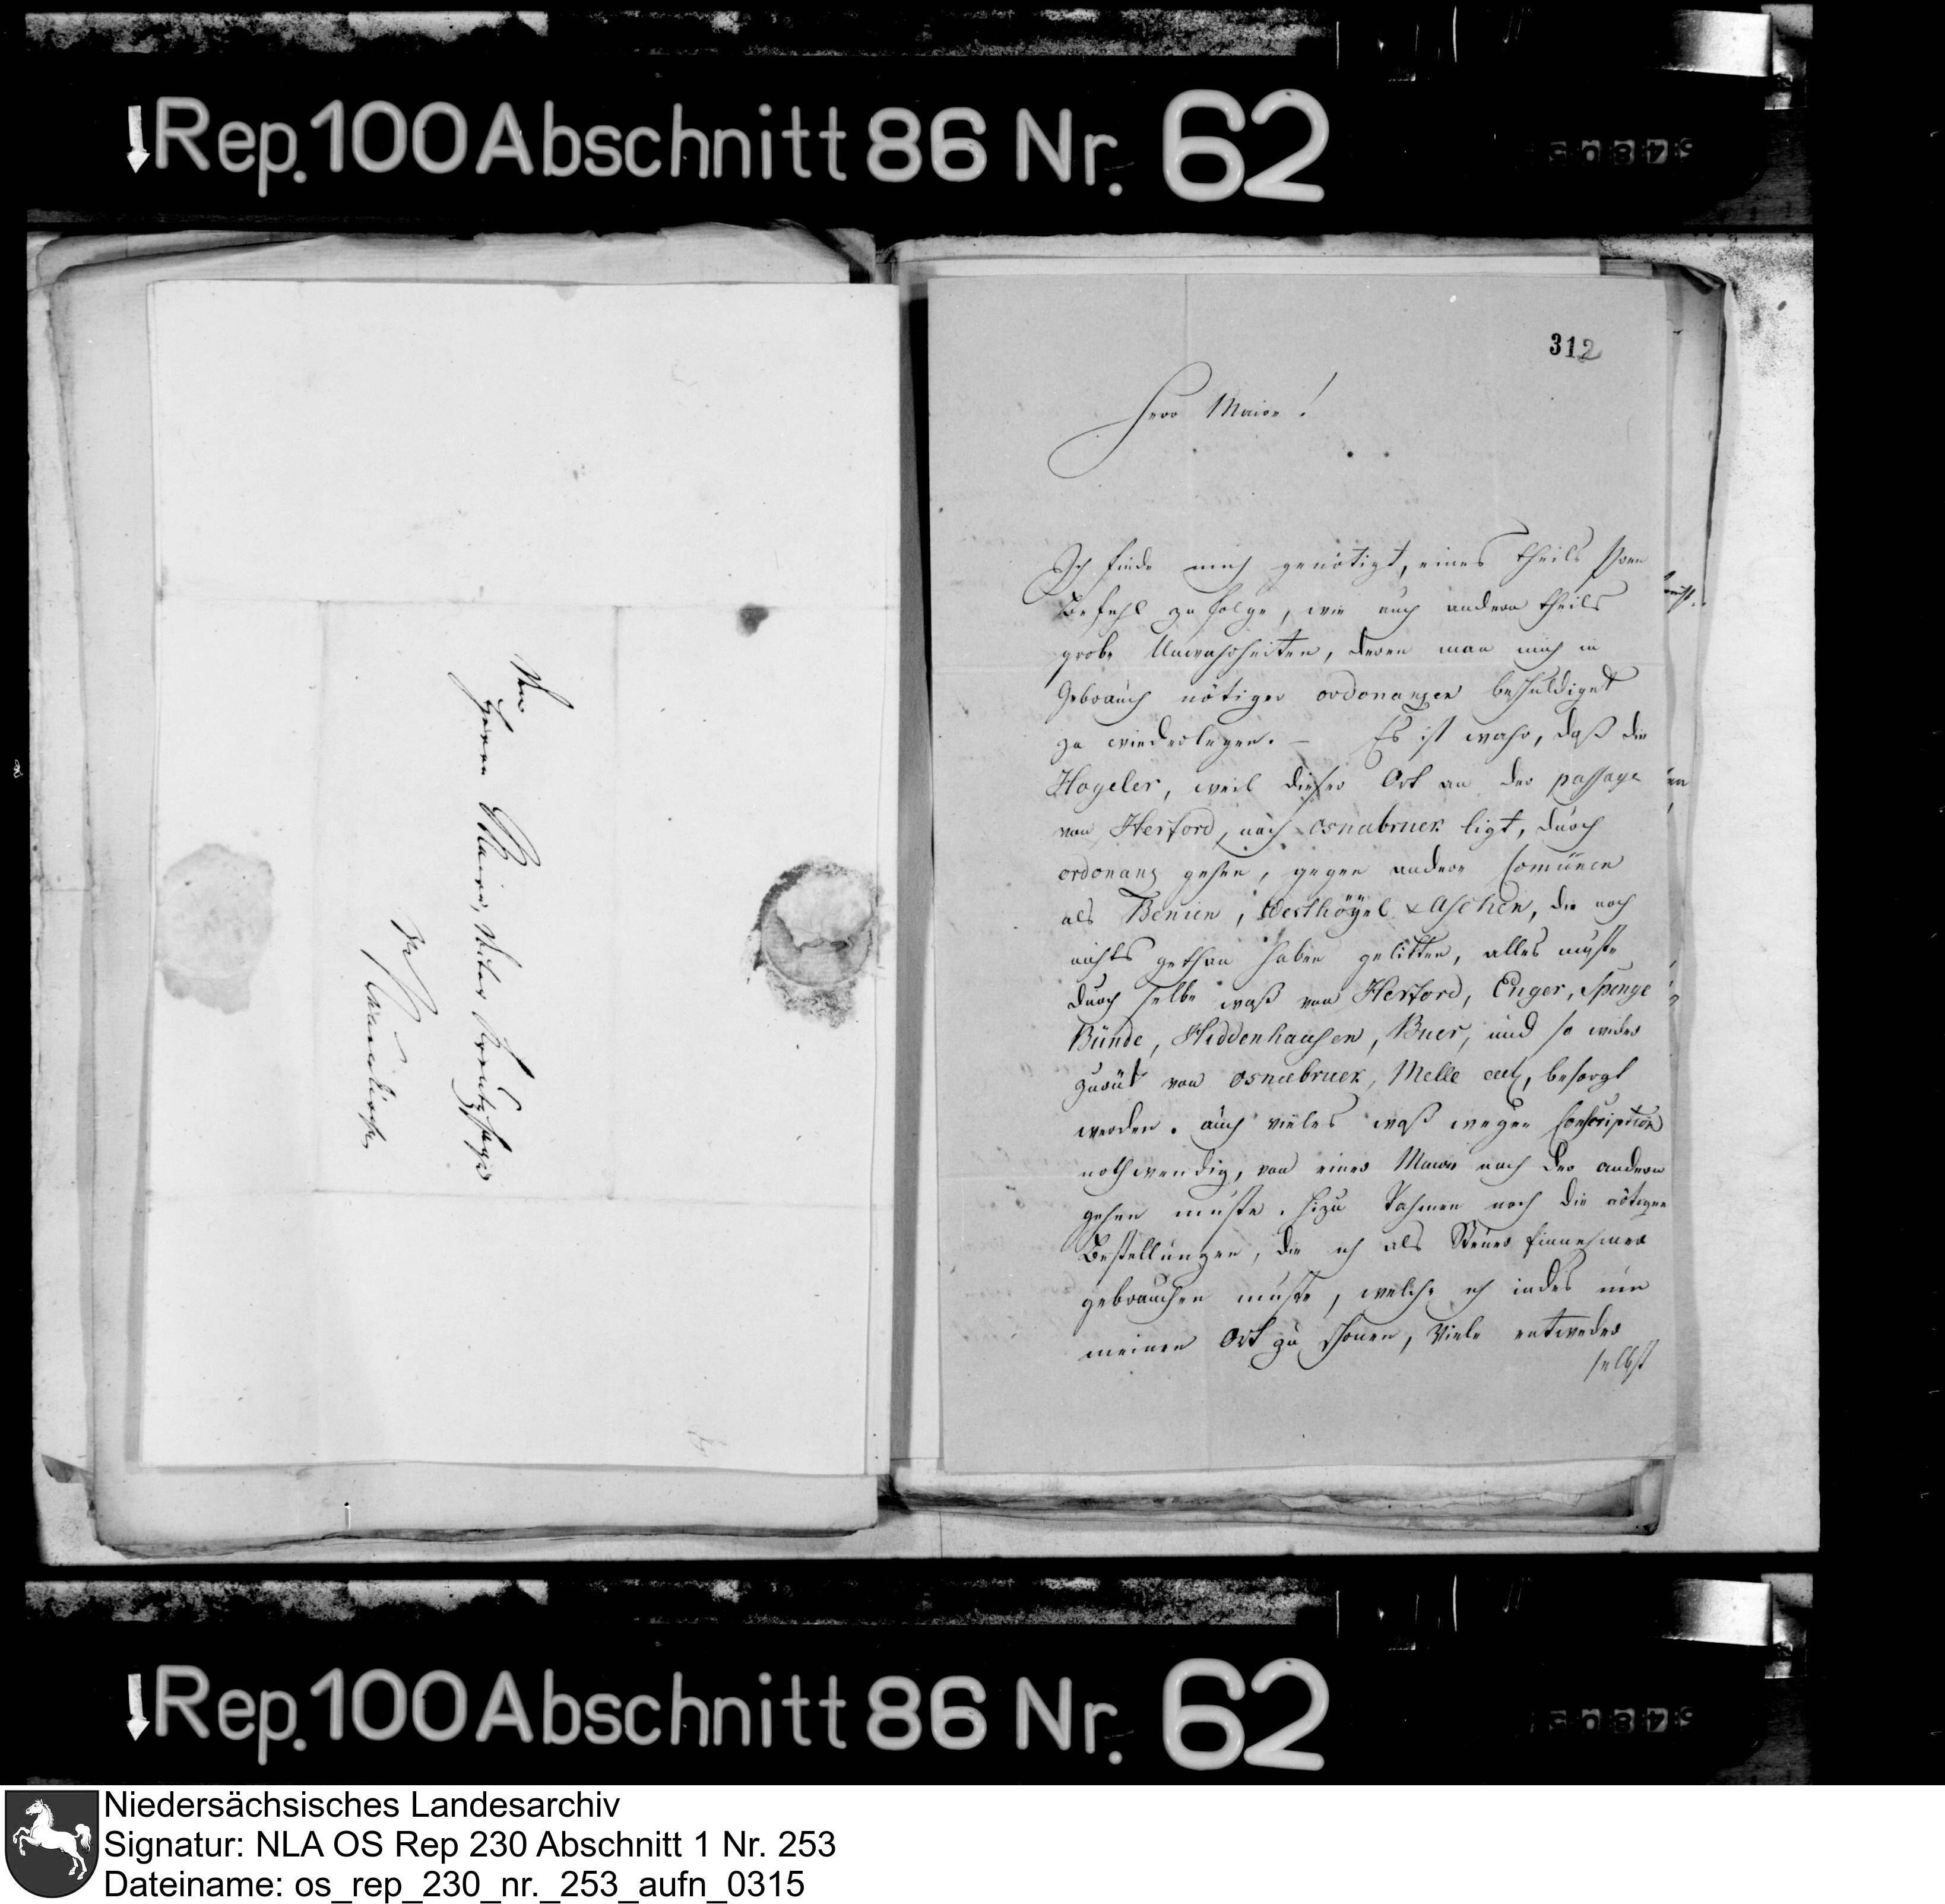 Rep. 100 Abschnitt 86 Nr. 62
An
Herrn Maire, Ritter
In
312
Herr Maire!
Ich finde mich genötigt, eines theils Ihren
Befehl zu folge, wie auch andern theils
grobe Unwahrheiten, deren man mich in
Gebrauch nötiger ordonanzen beschuldiget
zu wiederlegen. – Es ist wahr, daß die
Hogeler, weil dieser Ort an der passage
von Herford, nach osnabruck ligt, durch
ordonanz gehen, gegen andere Comünen
als Benien, Westhöÿel & Aschen, die noch
nichts gethan haben gelitten, alles muste
durch selbe waß von Herford, Enger, Spenge
Bünde, Hiddenhausen, Buer, und so wieder
zurük von osnabruck, Melle cet, besorgt
werden. auch vieles waß wegen Conscription
nothwendig, von einer Mairie nach der andern
gehen muste. hizu kahmen noch die nötigen
Bestellungen, die ich als Steuer Einnehmer
gebrauchen muste, welche ich indes um
meinen Ort zu schonen, viele entweder
selbst
Rep. 100 Abschnitt 86 Nr. 62
Niedersächsisches Landesarchiv
Signatur: NLA OS Rep 230 Abschnitt 1 Nr. 253
Dateiname: os_rep_230_nr._253_aufn_0315